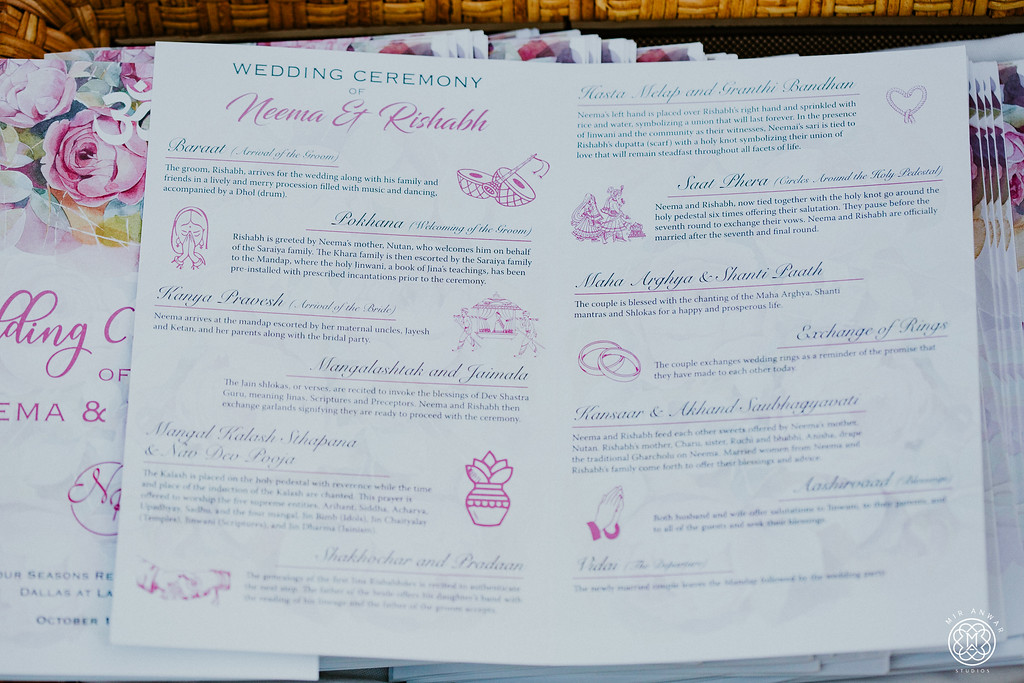 WEDDING CEREMONY
OF
Neema & Rishabh
Baraat (Arrival of the Groom)
The groom, Rishabh, arrives for the wedding along with his family and
friends in a lively and merry procession filled with music and dancing,
accompanied by a Dhol (drum).
Pokhana (Welcoming of the Groom)
Rishabh is greeted by Neema's mother, Nutan, who welcomes him on behalf
of the Saraiya family. The Khara family is then escorted by the Saraiya family
to the Mandap, where the holy Jinwani, a book of Jina's teachings, has been
pre-installed with prescribed incantations prior to the ceremony.
Kanya Pravesh (Arrival of the Bride)
Neema arrives at the mandap escorted by her maternal uncles, Jayesh
and Ketan, and her parents along with the bridal party.
Mangalashtak and Jaimala
The Jain shlokas, or verses, are recited to invoke the blessings of Dev Shastra
Guru, meaning Jinas, Scriptures and Preceptors. Neema and Rishabh then
exchange garlands signifying they are ready to proceed with the ceremony.
Mangal Kalash Sthapana
& Nav Dev Pooja
The Kalash is placed on the holy pedestal with reverence while the time
and place of the induction of the Kalash are chanted. This prayer is
offered to worship the five supreme entities, Arihant, Siddha, Acharya,
Upadhyay, Sadhu, and the four mangal, Jin Bimb (Idols), Jin Chaityalay
(Temples), Jinwani (Scriptures), and Jin Dharma (Jainism).
Shakhochar and Pradaan
The genealogy of the first Jina Rishabhdev is recited to authenticate
the next step. The father of the bride offers his daughter's hand with
the reading of his lineage and the father of the groom accepts.
Hasta Melap and Granthi Bandhan
Neema's left hand is placed over Rishabh's right hand and sprinkled with
rice and water, symbolizing a union that will last forever. In the presence
of Jinwani and the community as their witnesses, Neema's sari is tied to
Rishabh's dupatta (scarf) with a holy knot symbolizing their union of
love that will remain steadfast throughout all facets of life.
Saat Phera (Circles Around the Holy Pedestal)
Neema and Rishabh, now tied together with the holy knot go around the
holy pedestal six times offering their salutation. They pause before the
seventh round to exchange their vows. Neema and Rishabh are officially
married after the seventh and final round.
Maha Arghya & Shanti Paath
The couple is blessed with the chanting of the Maha Arghya, Shanti
mantras and Shlokas for a happy and prosperous life.
Exchange of Rings
The couple exchanges wedding rings as a reminder of the promise that
they have made to each other today.
Kansaar & Akhand Saubhagyavati
Neema and Rishabh feed each other sweets offered by Neema's mother,
Nutan. Rishabh's mother, Charu, sister, Ruchi and bhabhi, Anisha, drape
the traditional Gharcholu on Neema. Married women from Neema and
Rishabh's family come forth to offer their blessings and advice.
Aashirvaad (Blessings)
Both husband and wife offer salutations to Jinwani, to their parents, and
to all of the guests and seek their blessings.
Vidai (The Departure)
The newly married couple leaves the Mandap followed by the wedding party.
dding C
OF
EMA &
OUR SEASONS RE
DALLAS AT LA
OCTOBER 1
MIR ANWAR
STUDIOS